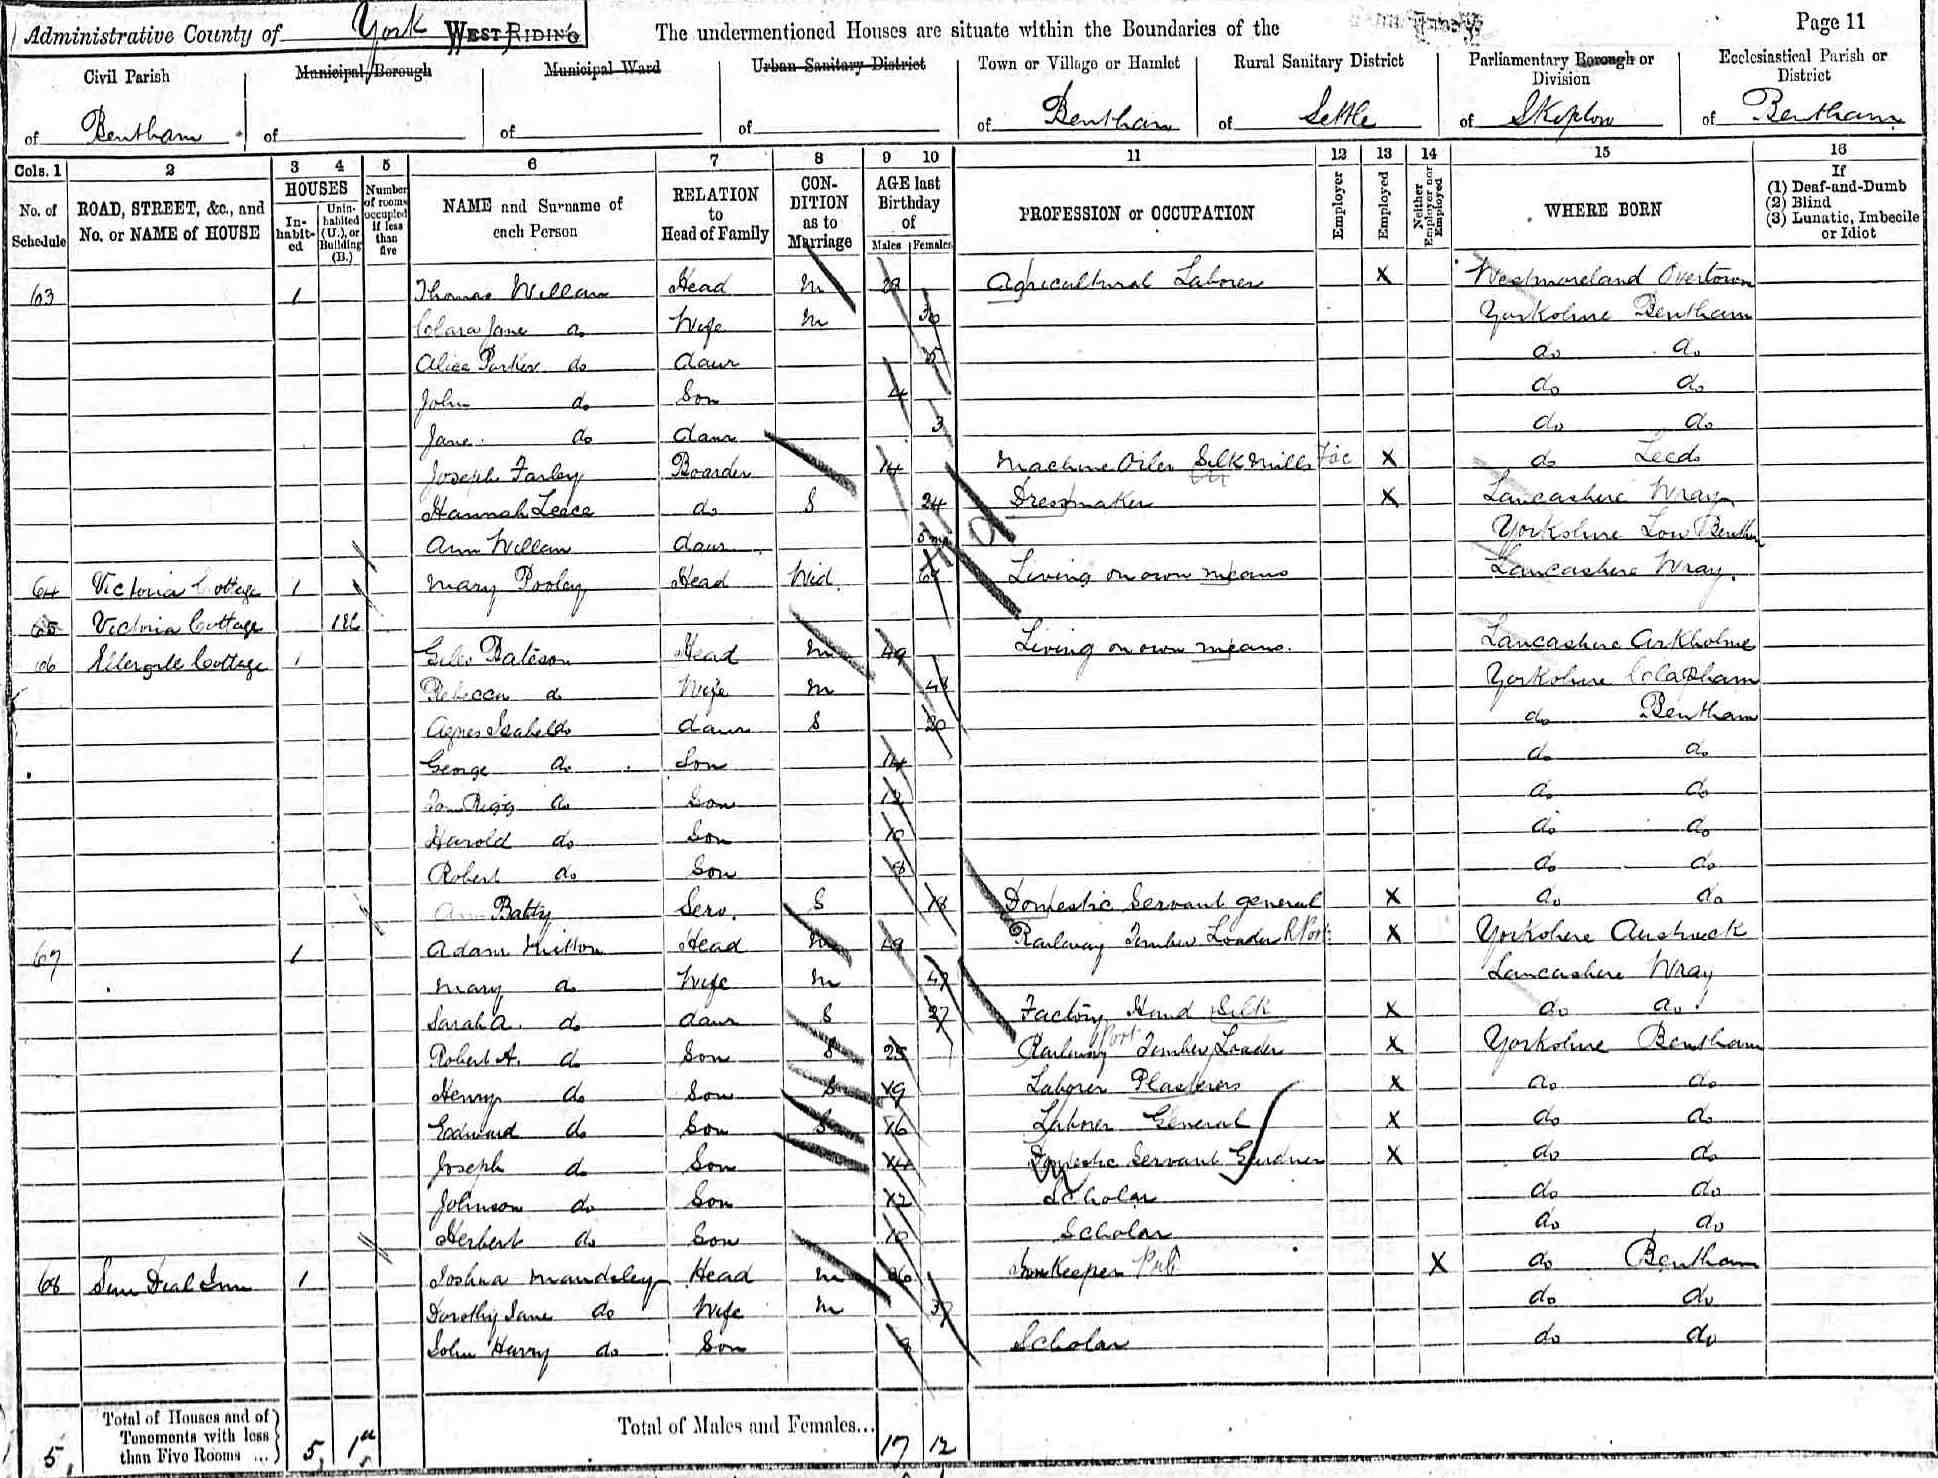 Administrative County of York WEST RIDING The undermentioned Houses are situate within the Boundaries of the Page 11
Civil Parish Municipal Borough Municipal Ward Urban Sanitary District Town or Village or Hamlet Rural Sanitary District Parliamentary Borough or Division Ecclesiastical Parish or District
of Bentham of of of of Bentham of Settle of Skipton of Bentham
Cols. 1 2 3 4 5 6 7 8 9 10 11 12 13 14 15 16
No. of Schedule ROAD, STREET, &c., and No. or NAME of HOUSE HOUSES In-habit-ed Unin-habited (U.), or Building (B.) Number of rooms occupied if less than five NAME and Surname of each Person RELATION to Head of Family CON-DITION as to Marriage AGE last Birthday of Males Females PROFESSION or OCCUPATION Employer Employed Neither Employer nor Employed WHERE BORN If (1) Deaf-and-Dumb (2) Blind (3) Lunatic, Imbecile or Idiot
63 1 Thomas Willan Head M 29 Agricultural Laborer X Westmoreland Overtown
Clara Jane do Wife M 30 Yorkshire Bentham
Alice Parker do daur 5 do do
John do Son 4 do do
Jane do daur 3 do do
Joseph Farley Boarder 14 Machine Oiler Silk Mills X do Leeds
Hannah Leece do S 24 Dressmaker X Lancashire Wray
Ann Willan daur 5 mo Yorkshire Low Bentham
64 Victoria Cottage 1 Mary Pooley Head Wid Living on own means Lancashire Wray
65 Victoria Cottage 1
66 Cottage 1 Giles Bateson Head M 49 Living on own means. Lancashire Arkholme
Rebecca do Wife M 48 Yorkshire Clapham
Agnes Isabel do daur S 20 do Bentham
George do Son 14 do do
Tom Rigg do Son do do
Harold do Son 10 do do
Robert do Son 8 do do
Ann Batty Serv. S 18 Domestic Servant general X do do
67 1 Adam Kitton Head M 49 Railway Timber Loader X Yorkshire Austwick
Mary do Wife M 47 Lancashire Wray
Sarah A. do daur S 27 Factory Hand Silk X do do
Robert A. do Son S 25 Railway Timber Loader X Yorkshire Bentham
Henry do Son S 19 Laborer Plasterers X do do
Edward do Son S 16 Laborer General X do do
Joseph do Son 14 Domestic Servant Gardner X do do
Johnson do Son 12 Scholar do do
Herbert do Son 10 Scholar do do
68 Sun Dial Inn 1 Joshua Maudsley Head M 36 Innkeeper Pub X do Bentham
Dorothy Jane do Wife M 37 do do
John Harry do Son Scholar do do
5 Total of Houses and of Tenements with less than Five Rooms ... 5 1u Total of Males and Females... 17 12